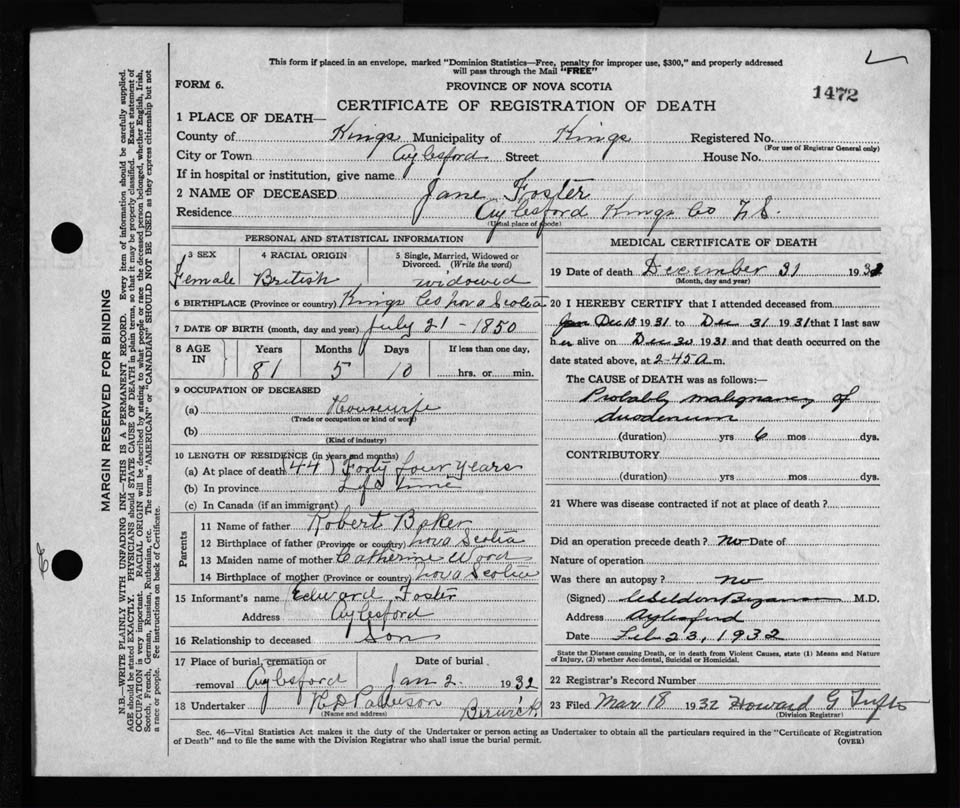 This form if placed in an envelope, marked "Dominion Statistics—Free, penalty for improper use, $300," and properly addressed
will pass through the Mail "FREE"
FORM 6.
PROVINCE OF NOVA SCOTIA
1472
CERTIFICATE OF REGISTRATION OF DEATH
1 PLACE OF DEATH—
County of Kings Municipality of Kings Registered No.
(For use of Registrar General only)
City or Town Aylesford Street House No.
If in hospital or institution, give name
2 NAME OF DECEASED Jane Foster
Residence Aylesford Kings Co N.S.
(Usual place of abode)
PERSONAL AND STATISTICAL INFORMATION
3 SEX 4 RACIAL ORIGIN 5 Single, Married, Widowed or
Divorced. (Write the word)
Female British widowed
6 BIRTHPLACE (Province or country) Kings Co Nova Scotia
7 DATE OF BIRTH (month, day and year) July 21 - 1850
8 AGE IN Years Months Days If less than one day,
81 5 10 hrs. or min.
9 OCCUPATION OF DECEASED
(a) Housewife
(Trade or occupation or kind of work)
(b)
(Kind of industry)
10 LENGTH OF RESIDENCE (in years and months)
(a) At place of death (44) Forty four years
(b) In province Life time
(c) In Canada (if an immigrant)
Parents
11 Name of father Robert Baker
12 Birthplace of father (Province or country) Nova Scotia
13 Maiden name of mother Catherine Wood
14 Birthplace of mother (Province or country) Nova Scotia
15 Informant's name Edward Foster
Address Aylesford
16 Relationship to deceased Son
17 Place of burial, cremation or Date of burial
removal Aylesford Jan 2 1932
18 Undertaker Berwick
(Name and address)
MEDICAL CERTIFICATE OF DEATH
19 Date of death December 31 193
(Month, day and year)
20 I HEREBY CERTIFY that I attended deceased from
Jan Dec 13 1931 to Dec 31 1931 that I last saw
her alive on Dec 30 1931 and that death occurred on the
date stated above, at 2-45 a m.
The CAUSE OF DEATH was as follows:—
Probably malignancy of
duodenum
(duration) yrs 6 mos dys.
CONTRIBUTORY
(duration) yrs mos dys.
21 Where was disease contracted if not at place of death?
Did an operation precede death? No Date of
Nature of operation
Was there an autopsy? no
(Signed) M.D.
Address Aylesford
Date Feb 23, 1932
State the Disease causing Death, or in death from Violent Causes, state (1) Means and Nature
of Injury, (2) whether Accidental, Suicidal or Homicidal.
22 Registrar's Record Number
23 Filed Mar 18 1932 Howard G Tufts
(Division Registrar)
Sec. 46—Vital Statistics Act makes it the duty of the Undertaker or person acting as Undertaker to obtain all the particulars required in the "Certificate of Registration
of Death" and to file the same with the Division Registrar who shall issue the burial permit.
(OVER)
MARGIN RESERVED FOR BINDING
N.B.—WRITE PLAINLY WITH UNFADING INK—THIS IS A PERMANENT RECORD. Every item of information should be carefully supplied.
AGE should be stated EXACTLY. PHYSICIANS should STATE CAUSE OF DEATH in plain terms, so that it may be properly classified. Exact statement of
OCCUPATION is very important. RACIAL ORIGIN will be described by stating to what people or race the deceased person belonged, whether English, Irish,
Scotch, French, German, Russian, Ruthenian, etc. The terms "AMERICAN" or "CANADIAN" SHOULD NOT BE USED as they express citizenship but not
a race or people. See instructions on back of Certificate.